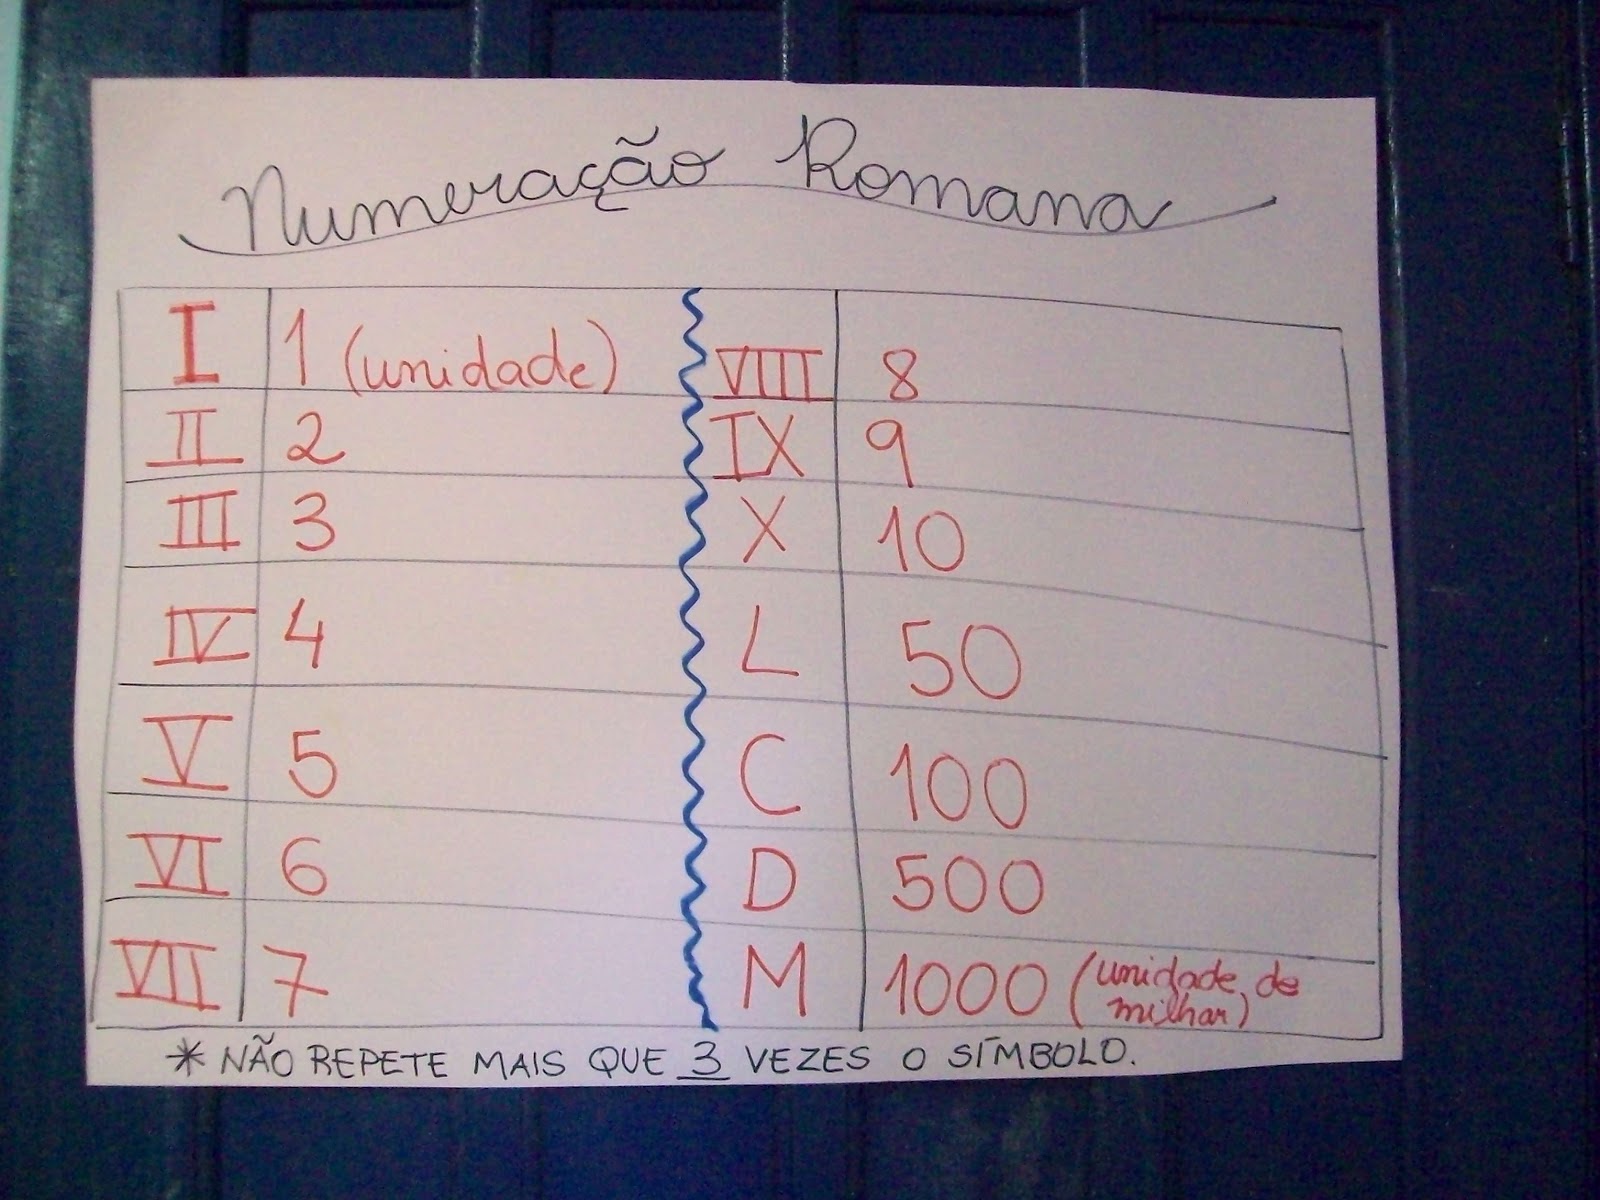 Numeração Romana
I 1 (unidade) VIII 8
II 2 IX 9
III 3 X 10
IV 4 L 50
V 5 C 100
VI 6 D 500
VII 7 M 1000 (unidade de
milhar)
* NÃO REPETE MAIS QUE 3 VEZES O SÍMBOLO.